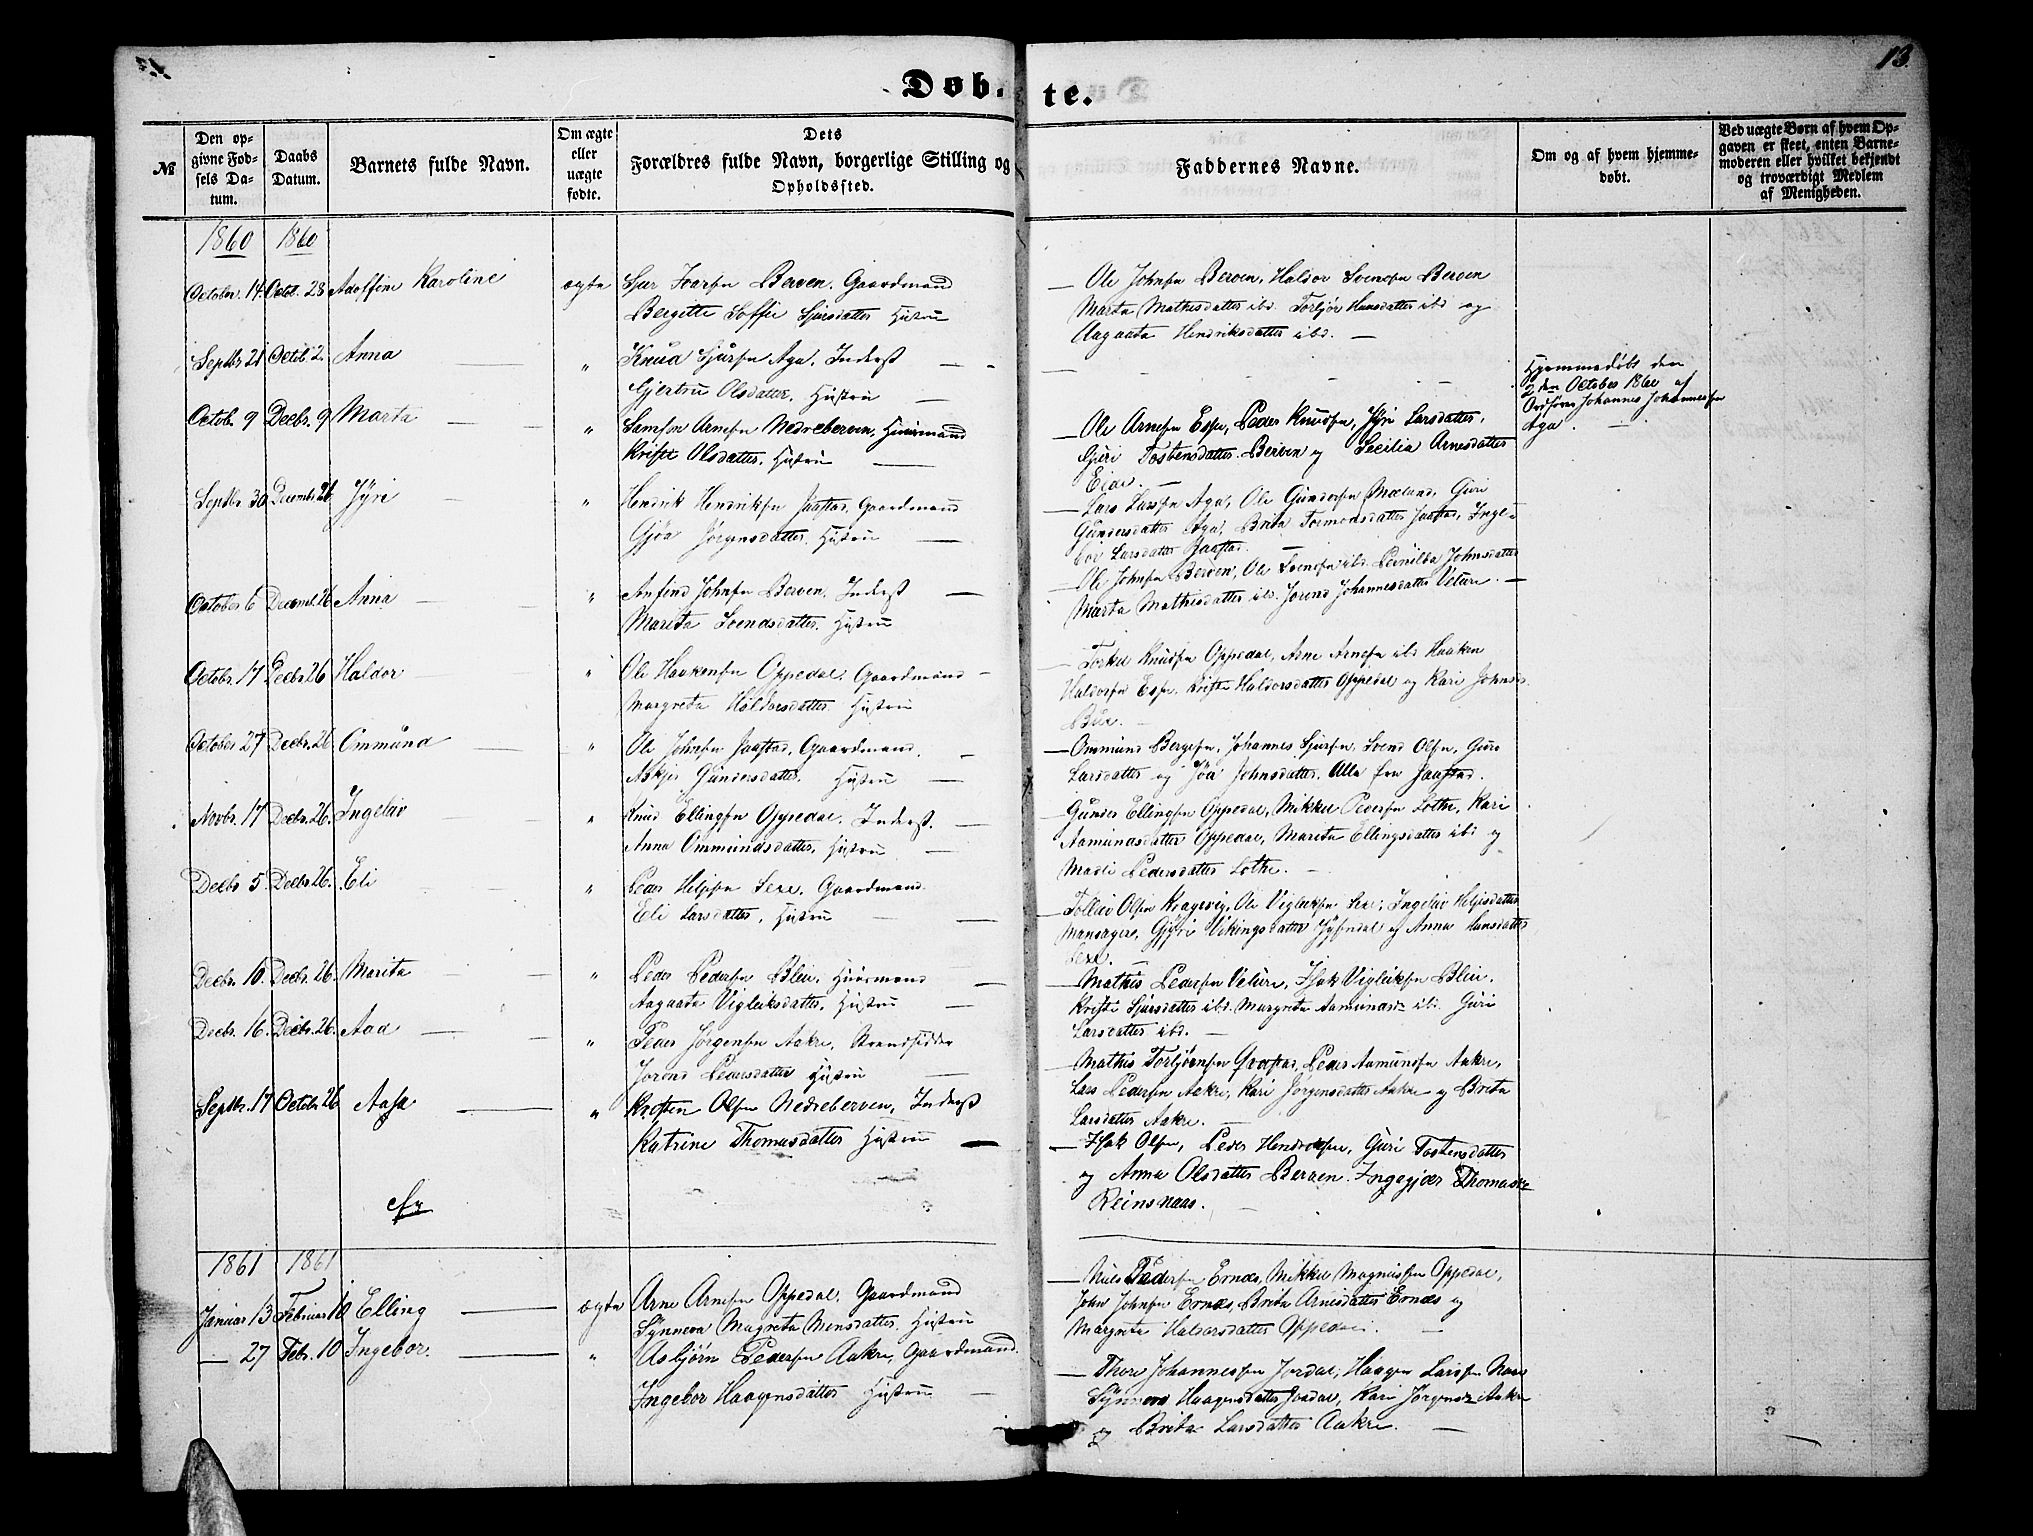 13.
Døb- te.
№
Den op-
givne Fød-
sels Da-
tum.
Daabs
Datum.
Barnets fulde Navn.
Om ægte
eller
uægte
fødte.
Dets
Forældres fulde Navn, borgerlige Stilling og
Opholdssted.
Faddernes Navne.
Om og af hvem hjemme-
døbt.
Ved uægte Børn af hvem Op-
gaven er skeet, enten Barne-
moderen eller hvilket bekjendt
og troværdigt Medlem
af Menigheden.
1860 1860
October 14. Octob. 28 Adolfine Karoline ægte Sjur Ivarsen Berven. Gaardmand
Bergitte Soffie Sjursdatter Hustru
Ole Johnsen Berven, Haldor Svensen Berven
Marta Mathisdatter ibd. Torbjør Hansdatter ibd og
Aagaata Hendriksdatter ibd.
Septbr 21 Octob 2. Anna " Knud Sjursen Aga, Inderst
Gjertru Olsdatter. Hustru
Hjemmedøbt den
2den October 1860 af
Johannes Johannessen
Aga.
Octob. 9 Decbr. 9 Marta " Samson Arnesen Nedreberven, Huusmand
Kristi Olsdatter, Hustru
Ole Arnesen Espe, Peder Knudsen, Larsdatter,
Guri Tostensdatter Berven og Secilia Arnesdatter
Septbr 30 Decembr 26 Jÿri " Hendrik Hendriksen Jaastad, Gaardmand
Gjøa Jørgensdatter. Hustru
Lars Larsen Aga, Ole Gundersen Mæland, Guri
Gundersdatter Aga, Brita Tormonsdatter Jaastad, Inge-
bor Larsdatter Jaastad.
October 6 Decembr 26 Anna " Anfind Johnsen Berven, Inderst
Marita Svendsdatter. Hustru
Ole Johnsen Berven, Ole Svensen ibd. Pernilda Johnsdatter
Marta Mathisdatter ibd. Jorend Johannesdatter Veture.
Octobr. 17 Decbr 26 Haldor " Ole Haakensen Oppedal, Gaardmand
Margreta Haldorsdatter Hustru
Torkel Knudsen Oppedal, Arne Arnesen ibd Haaken
Haldorsen Espe, Kristi Haldorsdatter Oppedal og Kari Johnsd.
Bue.
October 27 Decbr. 26 Ommund " Ole Johnsen Jaastad, Gaardmand.
Askjer Gundersdatter, Hustru
Ommund Bergesen, Johannes Sjursen, Svend Olsen, Guro
Larsdatter og Jøa Johnsdatter. Alle fra Jaastad.
Novbr. 17 Decbr. 26. Ingeløv " Knud Ellingsen Oppedal, Inderst.
Anna Ommundsdatter, Hustru
Gunder Ellingsen Oppedal, Mikkel Pedersen Lothe, Kari
Aamundsdatter Oppedal, Marita Ellingsdatter ibd og
Madli Pedersdatter Lothe.
Decbr 5 Decbr 26. Eli " Peder Helgesen Sexe, Gaardmand
Eli Larsdatter, Hustru
Tolleiv Olsen Kragevig, Ole Vigleiksen Sexe, Ingeløv Helgesdatter
Mansager, Vikingsdatter og Anna Hansdatter
Sexe.
Decbr. 10. Decbr. 26. Marita " Peder Pedersen Bleie, Huusmand
Aagaata Vigleiksdatter, Hustru
Mathis Pedersen Veture, Isak Vigleiksen Bleie.
Kristi Sjursdatter ibd. Margreta Aamundsd. ibd. Guri
Larsdatter ibd.
Decbr. 16. Decbr. 26. Aad " Peder Jørgensen Aakre, Strandsidder
Jorend Pedersdatter Hustru
Mathis Torbjørnsen Peder Aamundsen Aakre,
Lars Pedersen Aakre, Kari Jørgensdatter Aakre og Brita
Larsdatter Aakre.
Septbr. 17 Octobr 26 Aasa " Kristen Olsen Nedreberven, Inderst
Katrine Thomasdatter Hustru
Isak Olsen, Peder Hendriksen, Guri Tostensdatter
og Anna Olsdatter Berven. Ingegjær Thomasd.
Reinsnaas.
1861 1861
Januar 13 Februar 10 Elling ægte Arne Arnesen Oppedal, Gaardmand
Sÿnneva Magreta Monsdatter. Hustru
Niels Pedersen Ernæs, Mikkel Magnussen Oppedal,
John Johnsen Ernæs, Brita Arnesdatter Ernæs og
Margreta Haldorsdatter Oppedal.
— 27 Febr. 10 Ingebor. " Asbjørn Pedersen Aakre, Gaardmand.
Ingebor Haagensdatter Hustru
Thore Johannessen Jordal, Haagen Larsen
Sÿnneva Haagensdatter Jordal, Kari Jørgensd. Aakre
og Brita Larsdatter Aakre.